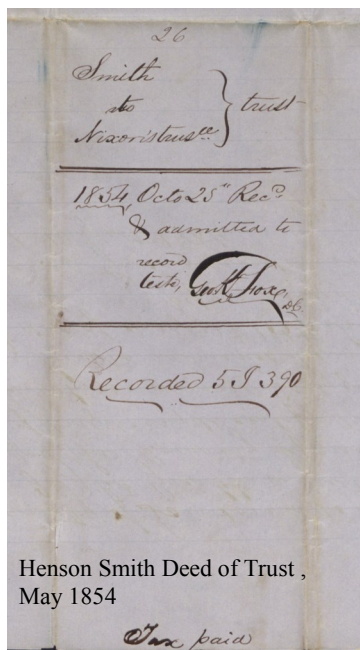 26
Smith
to } trust
Nixon's trustee
1854, Octo 25" Recd
& admitted to
record
teste, Geo K Fox, DC
Recorded 5 I 390
Henson Smith Deed of Trust ,
May 1854
Tax paid